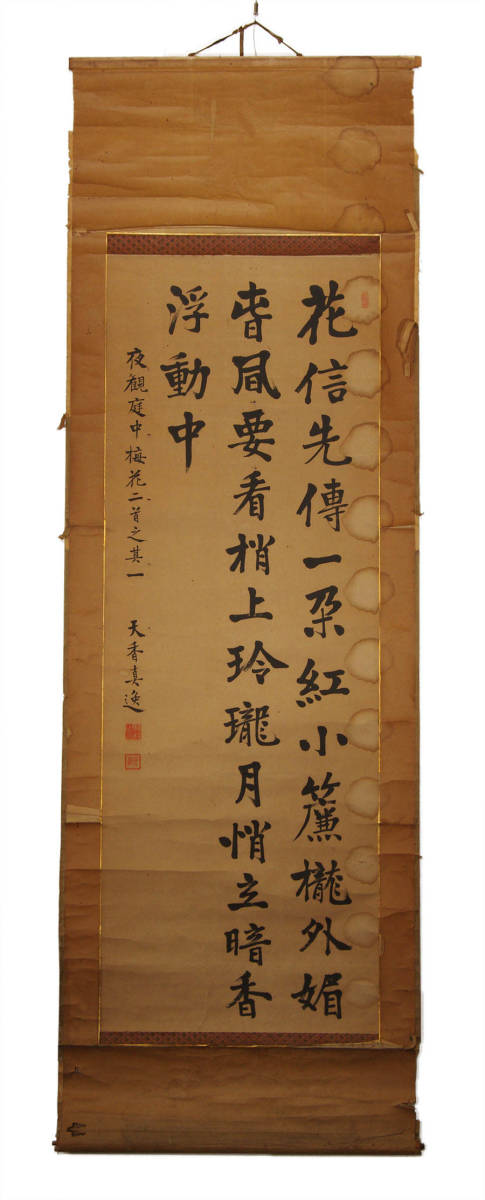 花信先傳一朶紅小簾櫳外媚
春風要看梢上玲瓏月悄立暗香
浮動中
夜観庭中梅花二首之其一 天香真逸